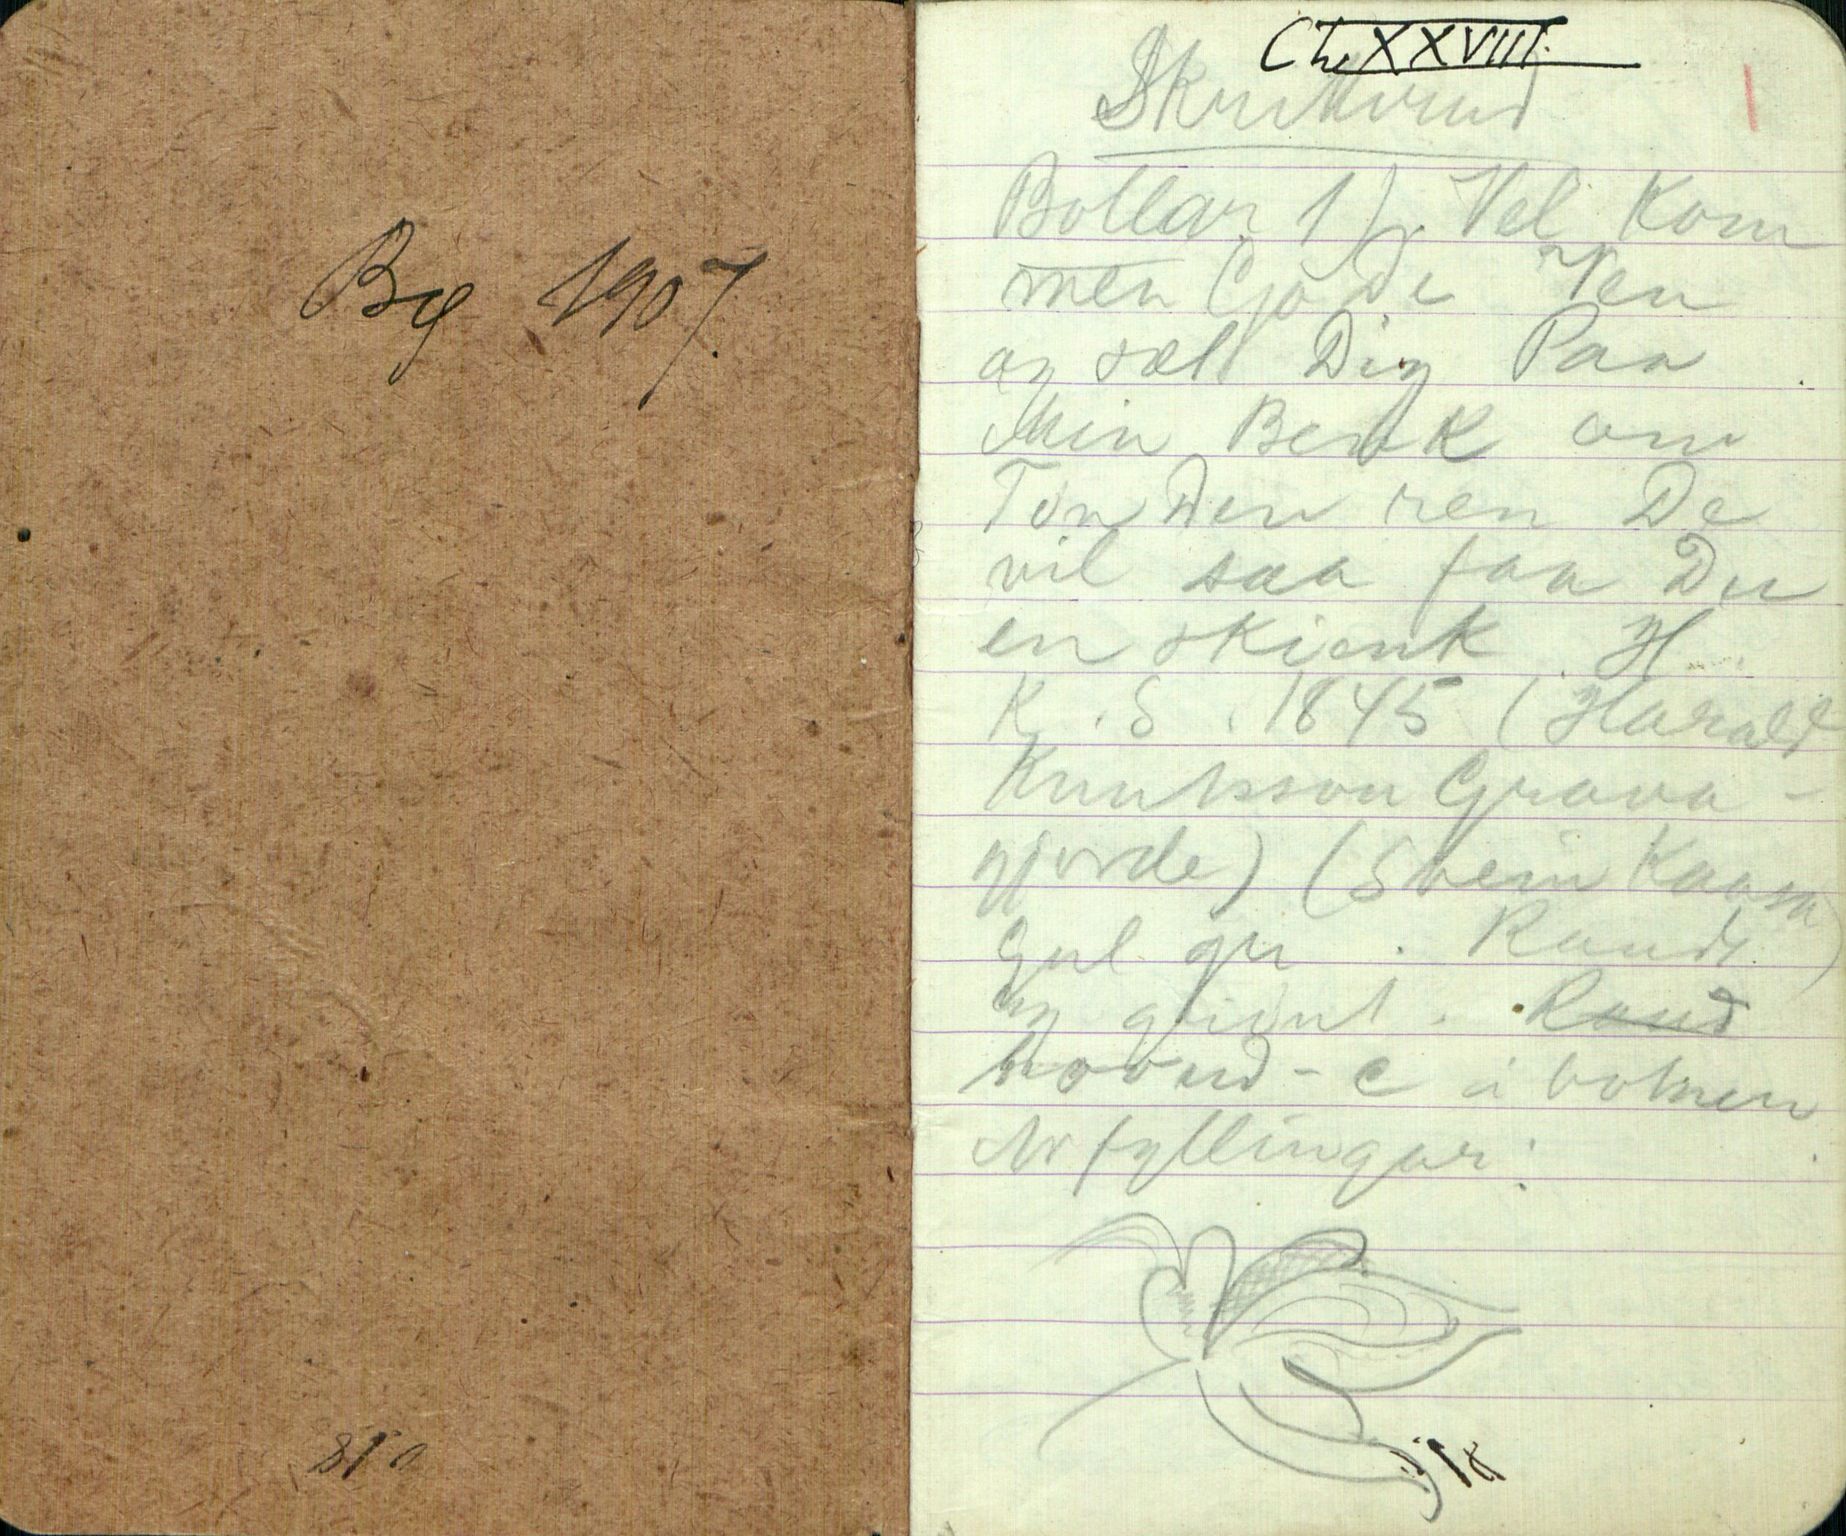 By 1907.
Ch. XXVIII.
1
Bollar 1). Vel kom
men Gode Ven
og sæt Dig Paa
Min Benk om
Tønden ren De
vil saa faa Du
en skienk. H
K. S. 1845 (Harald
Knutsson Grava-
gjorde) (Svein Kaasa)
Gul gr. Raudt
og grønt. Raud
botnen
fyllingar: